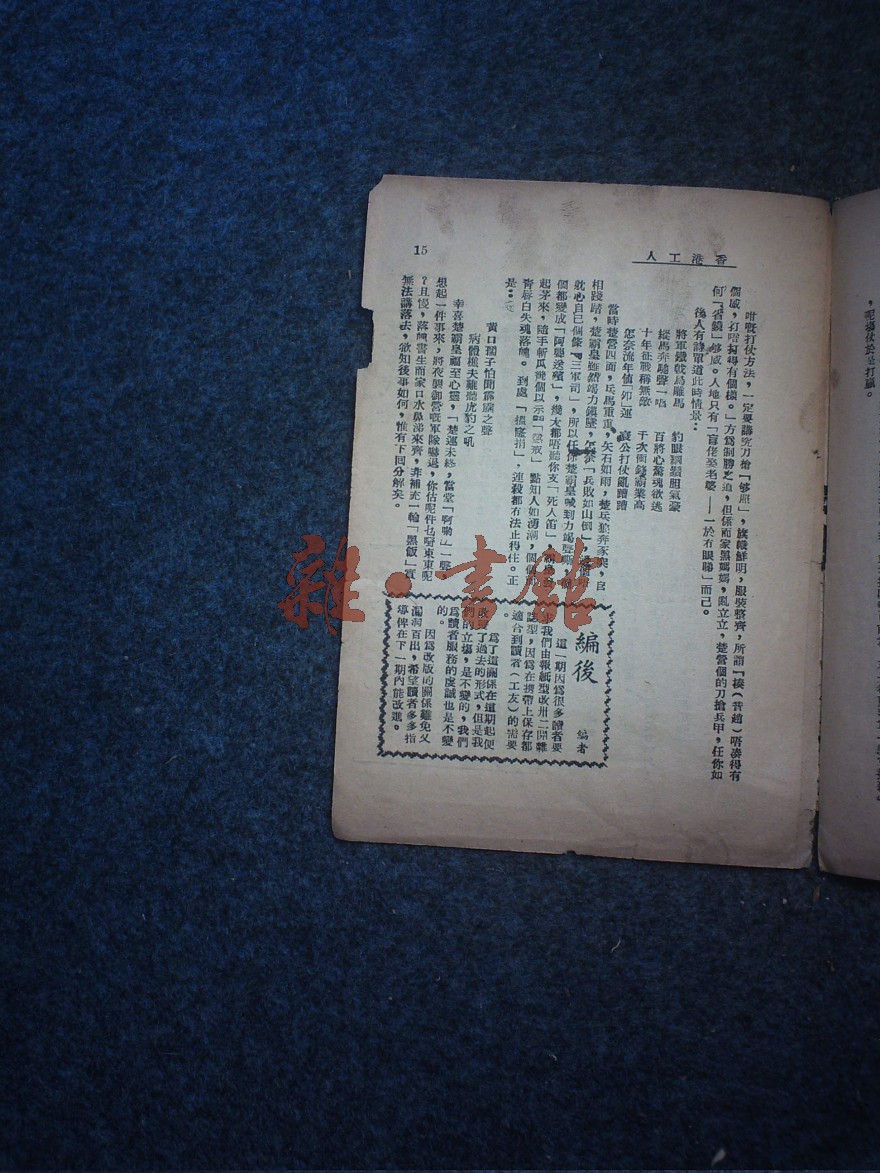 香港工人
15
咁嘅打仗方法,一定要講究刀槍「够照」,旗幟鮮明,服裝整齊,所謂『
唔湊得有
個威,打唔打得有個樣。」方為制勝之道,但係而家黑媽媽,亂立立,楚營個的刀搶兵甲,任你如
何「省鏡」够威。人地只有「盲佬娶老婆——一於冇眼睇」而已。
後人有詩單道此時情景:
將軍鐵戟烏騅馬 豹眼
膽氣豪
縱馬奔馳聲一唱 百將心驚魂欲逃
十年征戰稱無敵 千次衝鋒霸業高
怎奈流年值「卯」運
公打仗亂糟糟
當時楚營四面,兵馬重重,矢石如雨,楚兵狼奔豕突,自
相踐踏,楚霸皇雖然竭力鎮壓,怎奈「兵敗如山倒」
就心自己個條「三軍司」,所以任你楚霸皇喊到力竭聲嘶,
個都變成「阿聾送殯」,幾大都唔聽你支「死人笛」,
起茅來,隨手斬瓜幾個以示「懲戒」點知人如湧潮,個個
青唇白失魂落魄。到處「搵窿捐」,連殺都冇法止得住。正
是:
黃口孺子怕聞霹靂之聲
病體樵夫難聽虎豹之吼
幸喜楚霸皇福至心靈,「楚運未終,當堂「啊喲」一聲
想起一件事來,將夜調御營嘅軍隊嚇退,你估呢件乜嘢東東呢
?且慢,落魄書生而家口水鼻涕來齊,非補充一輪「黑飯」實
無法講落去,欲知後事如何,惟有下回分解矣。
編後
編者
這一期因為很多讀者要
求我們由報紙型改卅二開雜
誌型,因為在携帶上保存都
適合到讀者(工友)的需要
。
為了這關係在這期起便
改變了過去的形式,但是我
們的立場,是不變的,我們
為讀者服務的虔誠也是不變
的。
因為改版的關係難免又
漏洞百出,希望讀者多多指
導俾在下一期內能改進。
,呢場仗於是打贏。
雜·書館